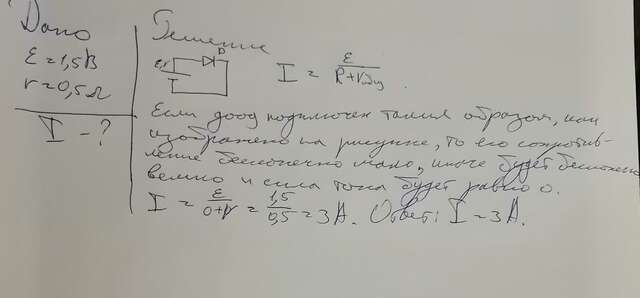 Дано
ε = 1,5В
r = 0,5Ω
I - ?
Решение
ε, r
D
I = ε / R + r
Если диод подключен таким образом, как
изображено на рисунке, то его сопротив-
ление бесконечно мало, иначе будет бесконечно
велико и сила тока будет равно 0.
I = ε / 0+r = 1,5 / 0,5 = 3 А. Ответ: I = 3 А.